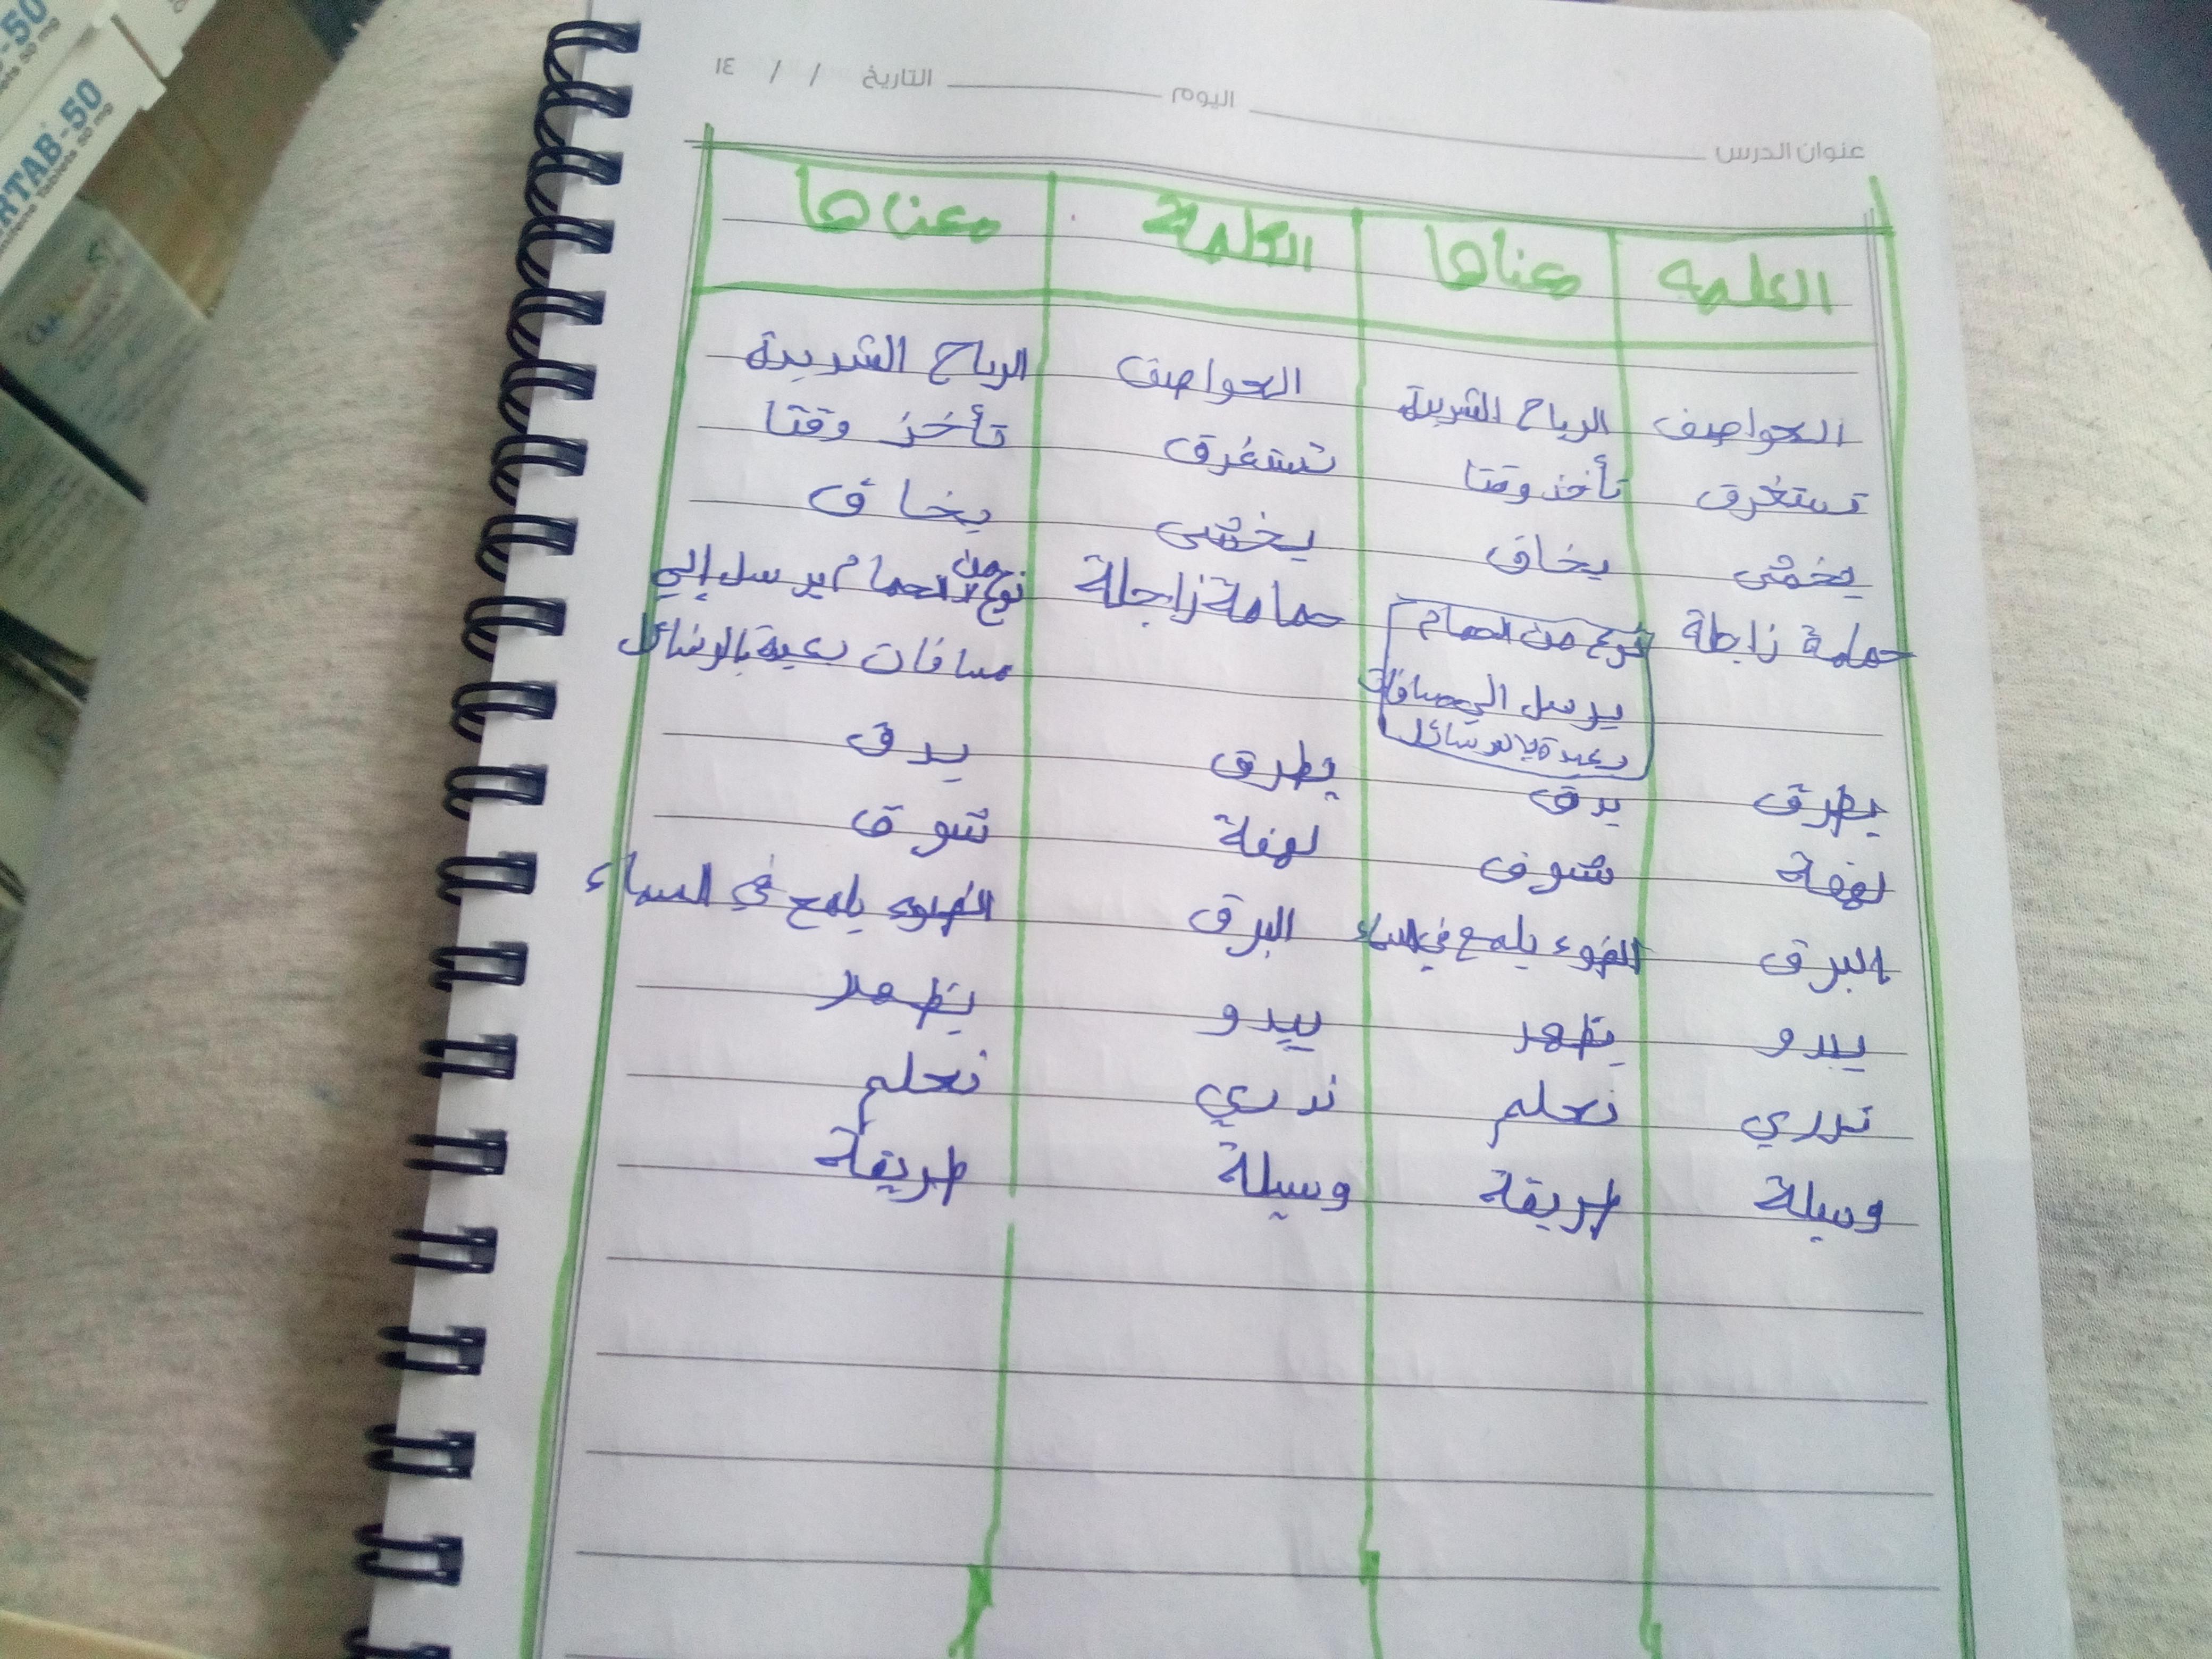 عنوان الدرس اليوم التاريخ / / ١٤
الكلمه معناها الكلمة معناها
العواصف الرياح الشديدة العواصف الرياح الشديدة
تستغرق تأخذ وقتا تستغرق تأخذ وقتا
يخشى يخاف يخشى يخاف
حمامة زاجلة نوع من الحمام حمامة زاجلة نوع من الحمام يرسل إلى
يرسل الى مسافات مسافات بعيدة بالرسائل
بعيدة بالرسائل
يطرق يدق يطرق يدق
لهفة شوق لهفة شوق
البرق الضوء يلمع في السماء البرق الضوء يلمع في السماء
يبدو يظهر يبدو يظهر
ندري نعلم ندري نعلم
وسيلة طريقة وسيلة طريقة
RTAB-50
Tablets 50 mg